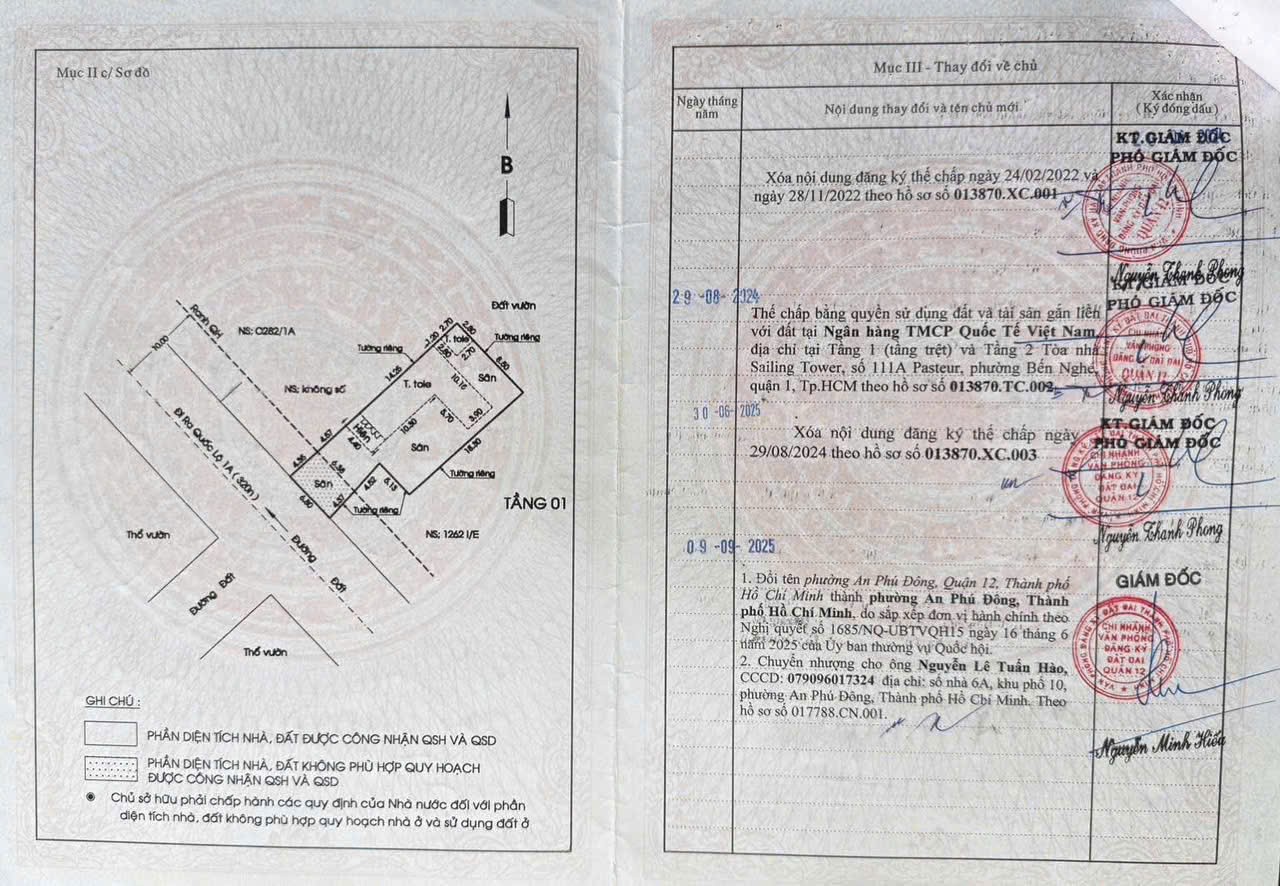 Mục II c/ Sơ đồ
B
Ranh QH
NS: C282/1A
Đất vườn
10.00
1.20
2.70
2.80
T. tole
Tường riêng
Tường riêng
2.80
2.70
6.50
14.25
NS: không số
T. tole
10.15
Sân
5.70
3.90
10.50
Hiên
4.60
4.57
Sân
16.30
4.36
6.56
Sân
Tường riêng
4.52
5.13
6.50
4.57
Tường riêng
TẦNG 01
Đi Ra Quốc Lộ 1A (320m)
NS: 1262 I/E
Thổ vườn
Đường Đất
Đường Đất
Thổ vườn
GHI CHÚ :
PHẦN DIỆN TÍCH NHÀ, ĐẤT ĐƯỢC CÔNG NHẬN QSH VÀ QSD
PHẦN DIỆN TÍCH NHÀ, ĐẤT KHÔNG PHÙ HỢP QUY HOẠCH
ĐƯỢC CÔNG NHẬN QSH VÀ QSD
Chủ sở hữu phải chấp hành các quy định của Nhà nước đối với phần
diện tích nhà, đất không phù hợp quy hoạch nhà ở và sử dụng đất ở
Mục III - Thay đổi về chủ
Ngày tháng
năm
Nội dung thay đổi và tên chủ mới
Xác nhận
( Ký đóng dấu)
KT.GIÁM ĐỐC
PHÓ GIÁM ĐỐC
Xóa nội dung đăng ký thế chấp ngày 24/02/2022 và
ngày 28/11/2022 theo hồ sơ số 013870.XC.001
QUẬN 12
Nguyễn Thanh Phong
29 -08- 2024
KT.GIÁM ĐỐC
PHÓ GIÁM ĐỐC
Thế chấp bằng quyền sử dụng đất và tài sản gắn liền
với đất tại Ngân hàng TMCP Quốc Tế Việt Nam,
địa chỉ tại Tầng 1 (tầng trệt) và Tầng 2 Tòa nhà
Sailing Tower, số 111A Pasteur, phường Bến Nghé,
quận 1, Tp.HCM theo hồ sơ số 013870.TC.002
CHI NHÁNH
VĂN PHÒNG
ĐĂNG KÝ ĐẤT ĐAI
QUẬN 12
Nguyễn Thanh Phong
30 -06- 2025
KT.GIÁM ĐỐC
PHÓ GIÁM ĐỐC
Xóa nội dung đăng ký thế chấp ngày
29/08/2024 theo hồ sơ số 013870.XC.003
CHI NHÁNH
VĂN PHÒNG
ĐĂNG KÝ
ĐẤT ĐAI
QUẬN 12
Nguyễn Thanh Phong
09 -09- 2025
GIÁM ĐỐC
1. Đổi tên phường An Phú Đông, Quận 12, Thành phố
Hồ Chí Minh thành phường An Phú Đông, Thành
phố Hồ Chí Minh, do sắp xếp đơn vị hành chính theo
Nghị quyết số 1685/NQ-UBTVQH15 ngày 16 tháng 6
năm 2025 của Ủy ban thường vụ Quốc hội.
2. Chuyển nhượng cho ông Nguyễn Lê Tuấn Hào,
CCCD: 079096017324 địa chỉ: số nhà 6A, khu phố 10,
phường An Phú Đông, Thành phố Hồ Chí Minh. Theo
hồ sơ số 017788.CN.001.
VĂN PHÒNG ĐĂNG KÝ ĐẤT ĐAI THÀNH PHỐ HỒ CHÍ MINH
CHI NHÁNH
VĂN PHÒNG
ĐĂNG KÝ
ĐẤT ĐAI
QUẬN 12
Nguyễn Minh Hiếu